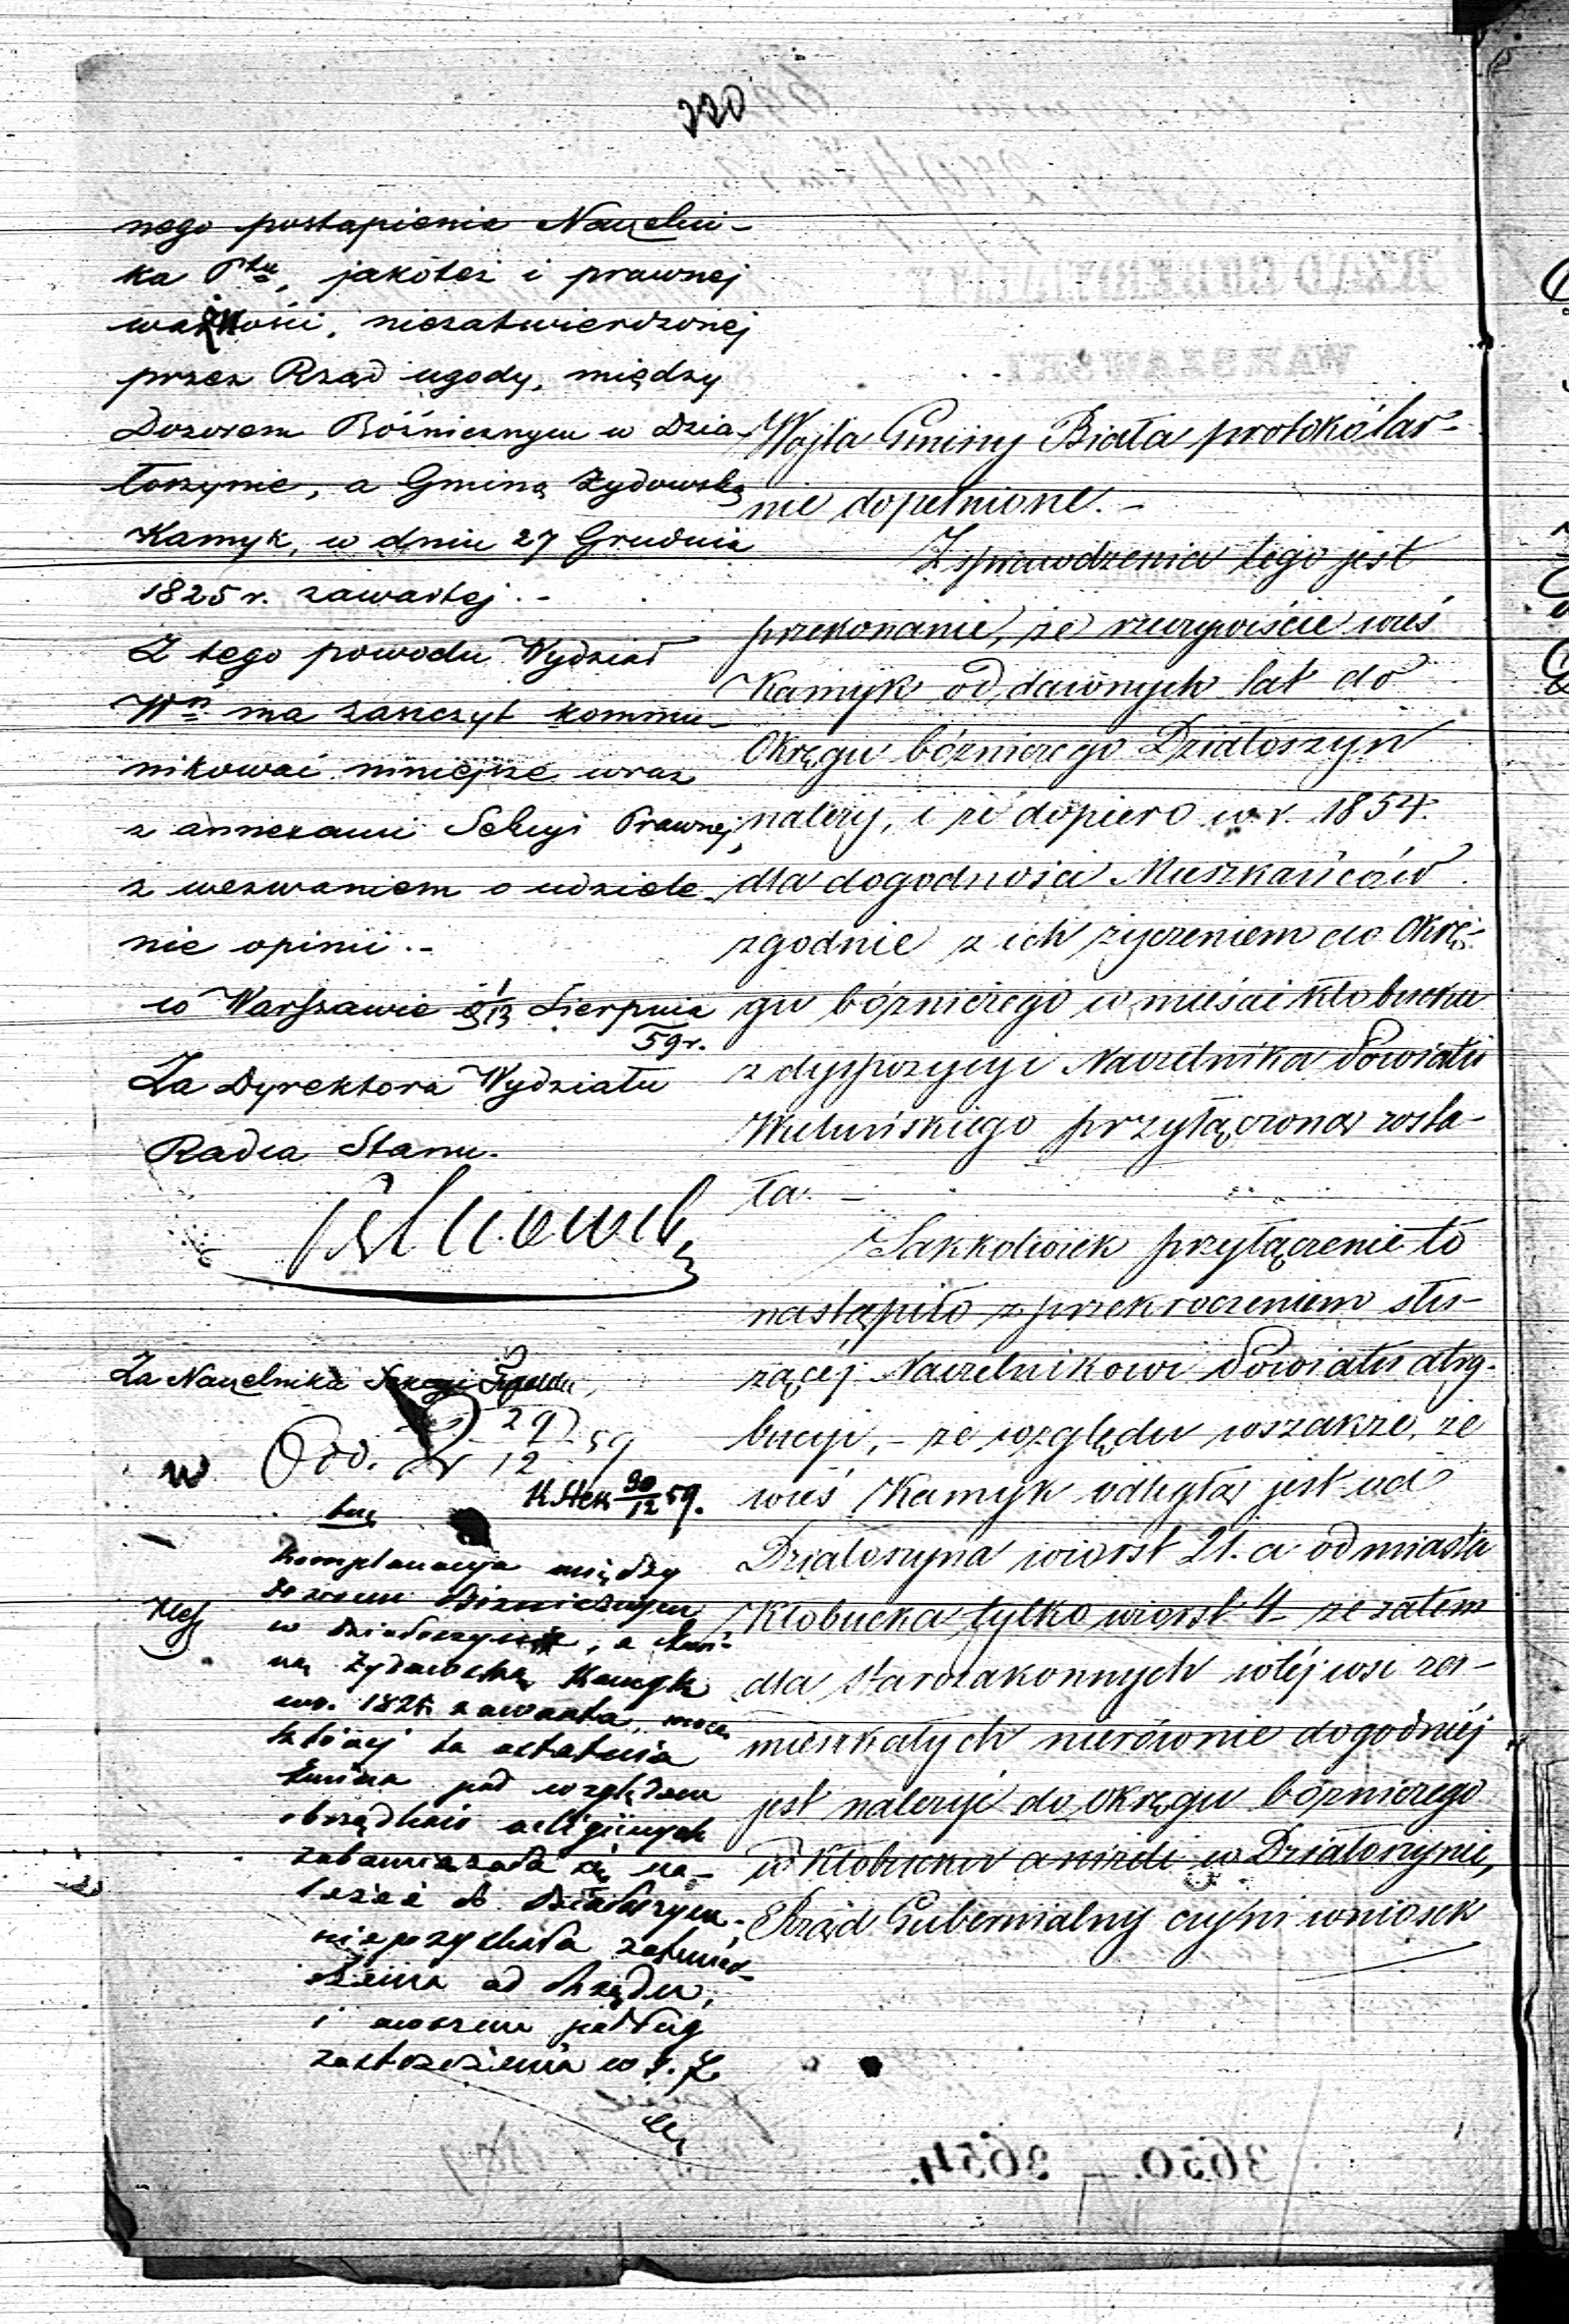 220
nego postąpienia Naczelni-
ka Ptu, jakoteż i prawnej
ważności, niezatwierdzonej
przez Rząd ugody, między
Dozorem Bóżnicznym w Dzia-
łoszynie, a Gminą Żydowską
Kamyk, w dniu 27 Grudnia
1825 r. zawartej.-
Z tego powodu Wydział
Wń ma zaszczyt kommu-
nikować niniejsze wraz
z annexami Sekcyi Prawnej,
z wezwaniem o udziele-
nie opinii.-
w Warszawie 1/13 Sierpnia
59 r.
Za Dyrektora Wydziału
Radca Stanu.
Za Naczelnika Sekcyi
29
12 59
30/12 59.
Komplanacyja między
dozorem Bóżnicznym
w Działoszynie, a Gmi-
ną Żydowską Kamyk
w r. 1825 zawarta, mocą
której ta ostatnia
Gmina pod względem
obrządków religijnych
zobowiązała się na-
leżeć do Działoszyna,
nie pozyskała zatwier-
dzenia od Rządu,
i owszem podług
zastrzeżenia w
Wójta Gminy Biała protokólar-
nie dopełnione.-
Z sprawdzenia tego jest
przekonanie, że rzeczywiście wieś
Kamyk od dawnych lat do
Okręgu bóżniczego Działoszyn
należy, i że dopiero w r. 1854.
dla dogodności Mieszkańców
zgodnie z ich życzeniem do Okrę-
gu bóżniczego w mieście Kłobucku
z dyspozycyi Naczelnika Powiatu
Wieluńskiego przyłączona zosta-
ła.-
Jakkolwiek przyłączenie to
nastąpiło z przekroczeniem słu-
żącej Naczelnikowi Powiatu atry-
bucyi,- ze względu wszakże, że
wieś Kamyk odległa jest od
Działoszyna wiorst 21. a od miasta
Kłobucka tylko wiorst 4- że zatem
dla starozakonnych w tej wsi za-
mieszkałych nierównie dogodniej
jest należyć do Okręgu bóżniczego
w Kłobucku aniżeli w Działoszynie,
Rząd Gubernialny czyni wniosek
RZĄD GUBERNIALNY
WARSZAWSKI
3650. - 3654.